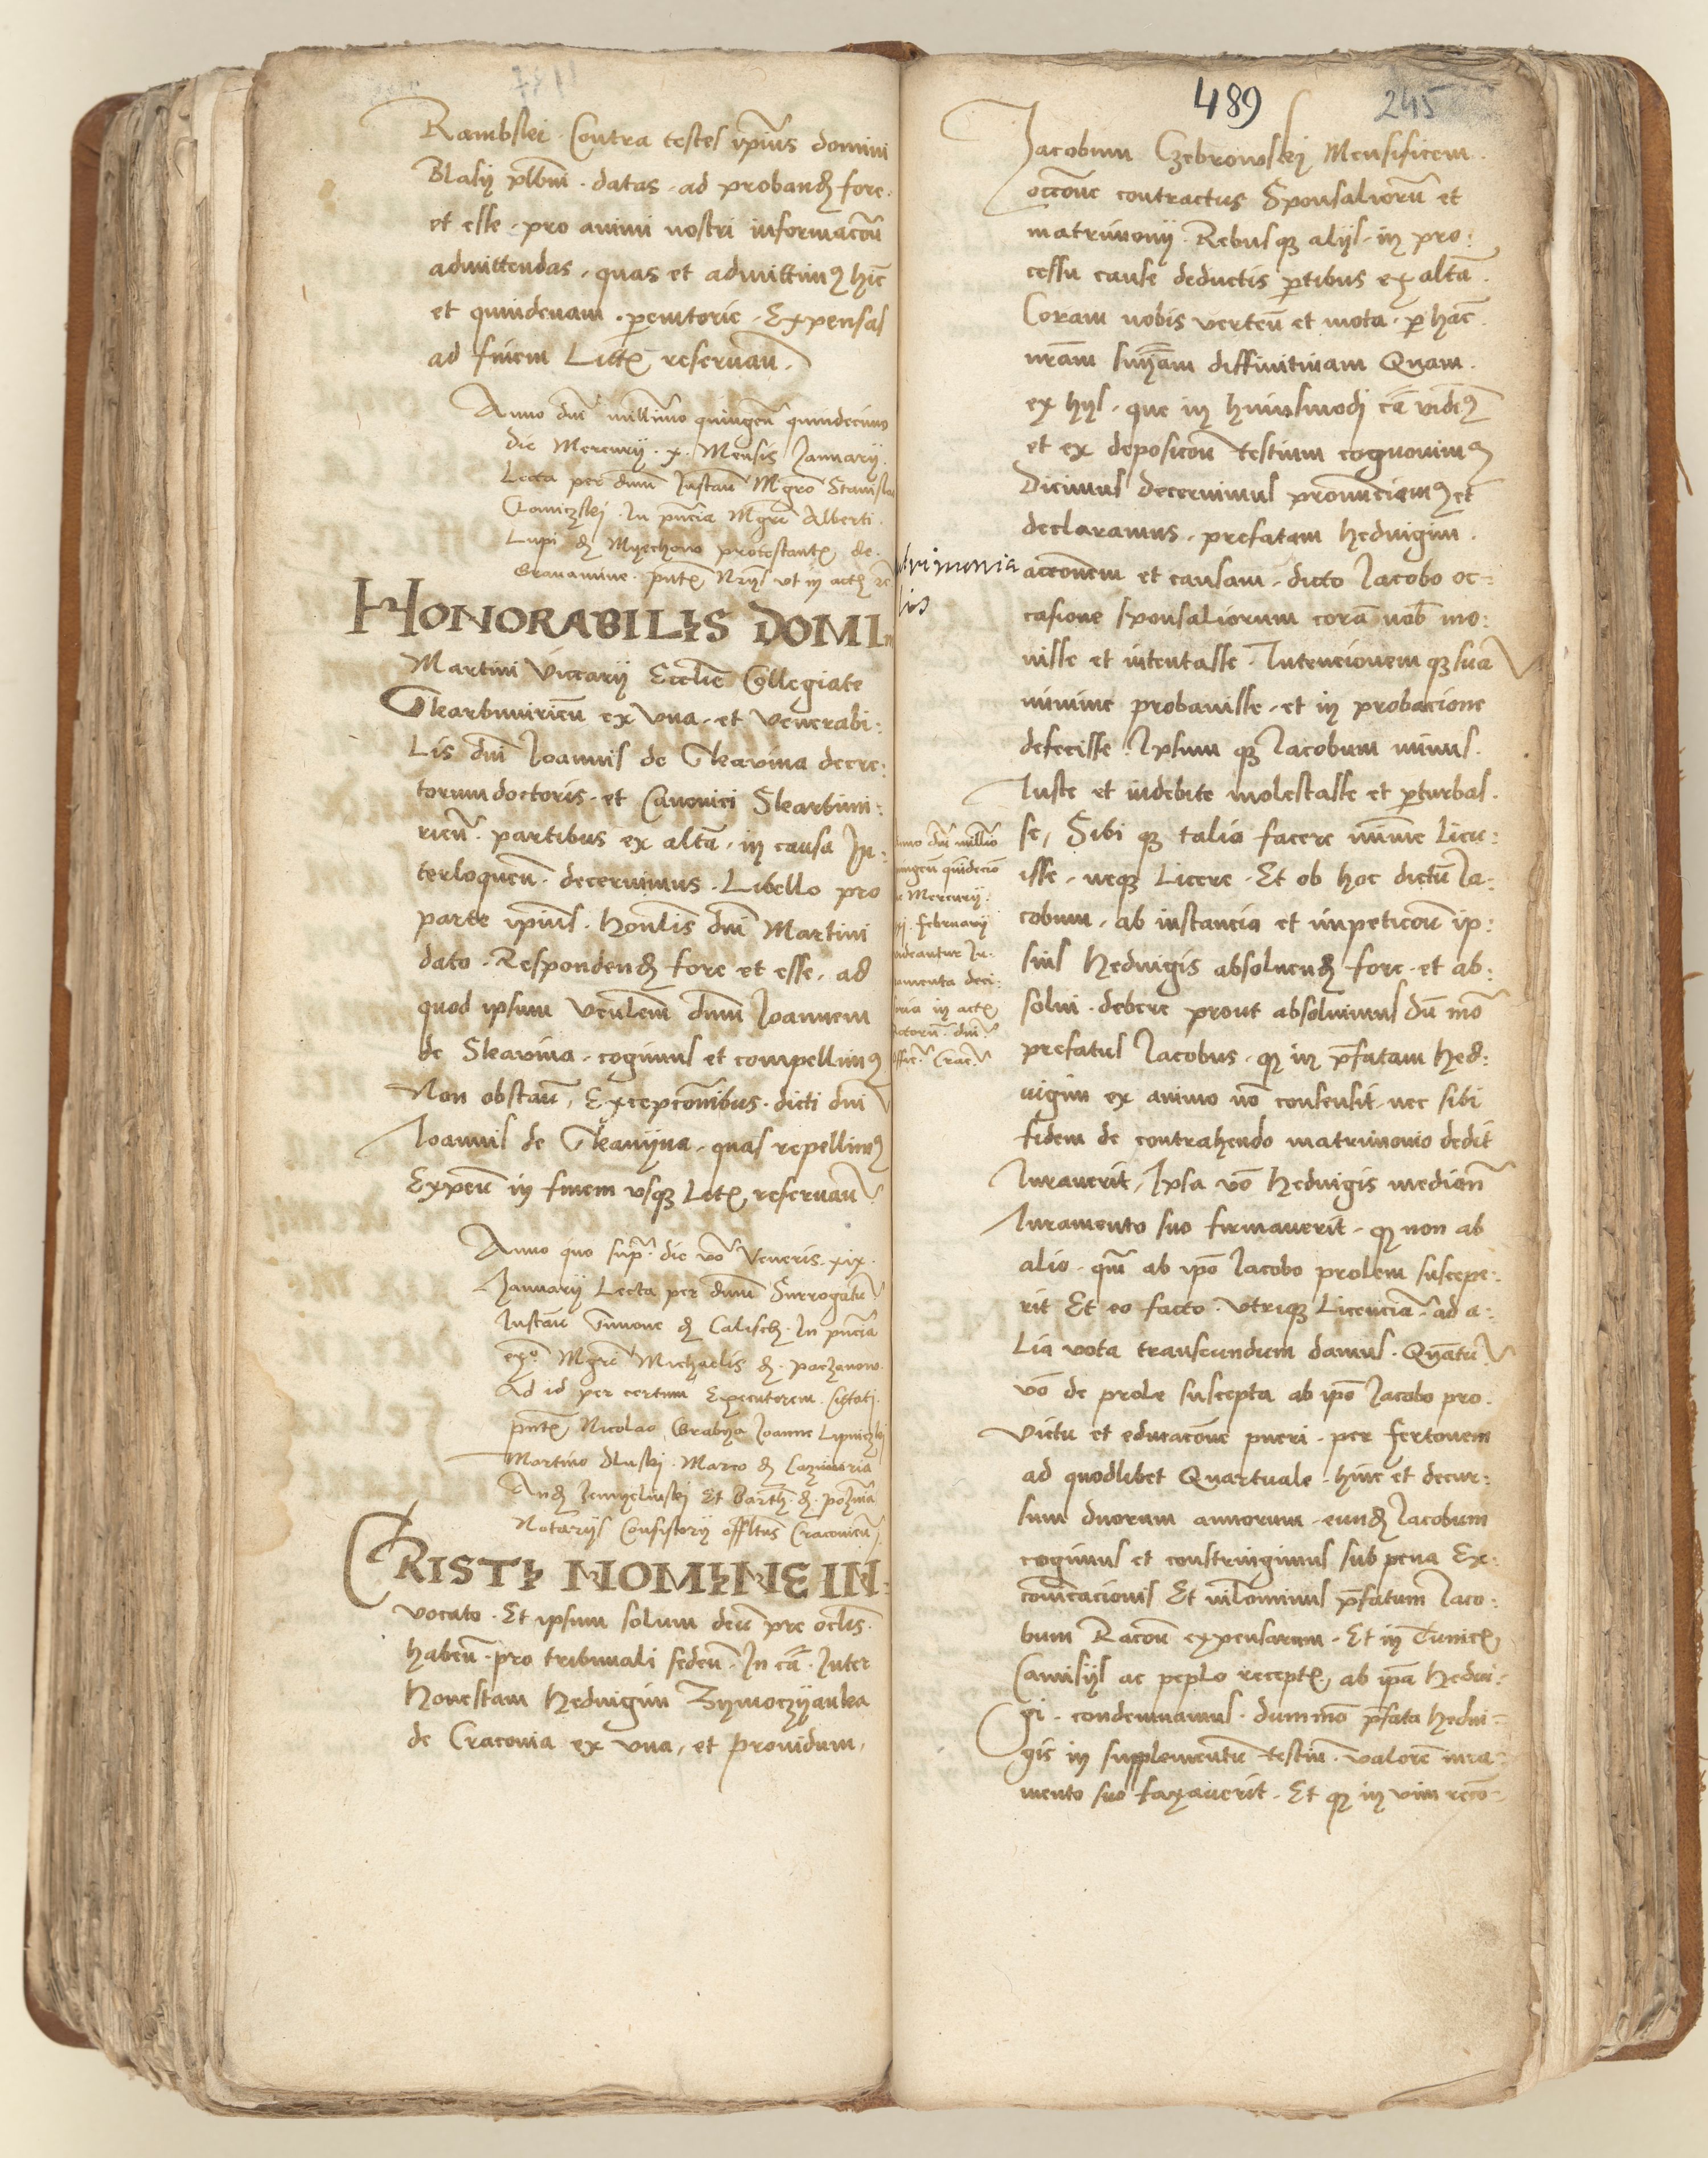 Rambskei Contra testes ipius domini
Blasij plbni datas ad proband fore
et esse pro animi nostri informacou
admittendas quas et admittim9 hic
et quindenam pemtorie Expensas
ad finem Litis reseruan
Anno dni millimo quingen quindecimo
die Mercurij x Mensis Januarij
Lecta per dnm Instan Mgro Stanisla
In pncia Mgri Alberti
Lupi de Myechow protestante de
Grauamine pntibus Nrijs vt in actis
HONORABILIS DOMI
Martini Vicarij Ecclie Collegiate
Skarbimirien ex vna et Venerabi
Lis dni Joannis de Skavina decre
torum doctoris et Canonici Skarbimi
rien partibus ex alta in causa In
terloquen decernimus Libello pro
parte ipius honlis dni Martini
dato Respondend fore et esse ad
quod ipsum Venlem dnm Joannem
de Skavina cogimus et compellim9
Non obstan Excepconibus dicti dni
Joannis de Skavijna quas repellim9
Expen in finem vsq Litis reseruan
Anno quo supra die vo Veneris xix
Januarij Lecta per dnm Surrogatu
Instan Simone de Calisch In pncia
Mgri Michaelis de
Ad id per certum Executorem Citati
pntibus Nicolao Grabya Joanne Lipniczki
Martino Dluski Marco de Cazimiria
Et Barth de Pozna
Notarijs Consistorij offltus Cracouien
CRISTI NOMINE IN
vocato Et ipsum solum deu pre oclis
haben pro tribunali seden In ca Inter
honestam heduigim
de Cracouia ex vna et prouidum
489
245
Jacobum Czebrowskij Mensificem
occone contractus Sponsalioru et
matrimonij Rebusq alijs in pro
cessu cause deductis ptibus ex alta
Coram nobis verten et mota p hac
nram sniam diffinitiuam Quam
ex hijs que in huiusmodi ca vidim9
et ex deposicou testium cognouim9
Dicimus decernimus pronunciam9 et
declaramus prefatam heduigim
trimonia
lis
acconem et causam dicto Jacobo oc
casione sponsaliorum cora nob mo
uisse et intentasse Intencionem q sua
minime probauisse et in probacione
defecisse Ipsum q Jacobum minus
Juste et indebite molestasse et pturbas
se Sibi q talia facere minime licu
isse neq Licere Et ob hoc dictu Ja
cobum ab instancia et impeticou ip
sius heduigis absoluend fore et ab
solui debere prout absoluimus du mo
nno dni millio
ingen quidecio
Mercurij
februarij
ideantur Ju
amenta deci
in actis
ctoru dni
ffic Crac
prefatus Jacobus q in pfatam hed
uigim ex animo no consensit nec sibi
fidem de contrahendo matrimonio dedit
Iurauerit Ipsa vo heduigis median
Iuramento suo firmauerit q non ab
alio qm ab ipo Jacobo prolem suscepe
rit Et eo facto vtriq Licencia ad a
Lia vota transeundum damus Quatu
vo de prole suscepta ab ipo Jacobo pro
Victu et educacone pueri per fertonem
ad quodlibet Quartuale hinc et decur
sum duorum annorum eund Jacobum
cogimus et constringimus sub pena Ex
conicacionis Et nilominus pfatum Jaco
bum Racou expensarum Et in Tunicis
Camisijs ac peplo receptis ab ipa hedui
gi condemnamus dummo pfata hedui
gis in supplementu testiu valore iura
mento suo taxauerit Et q in vim reco